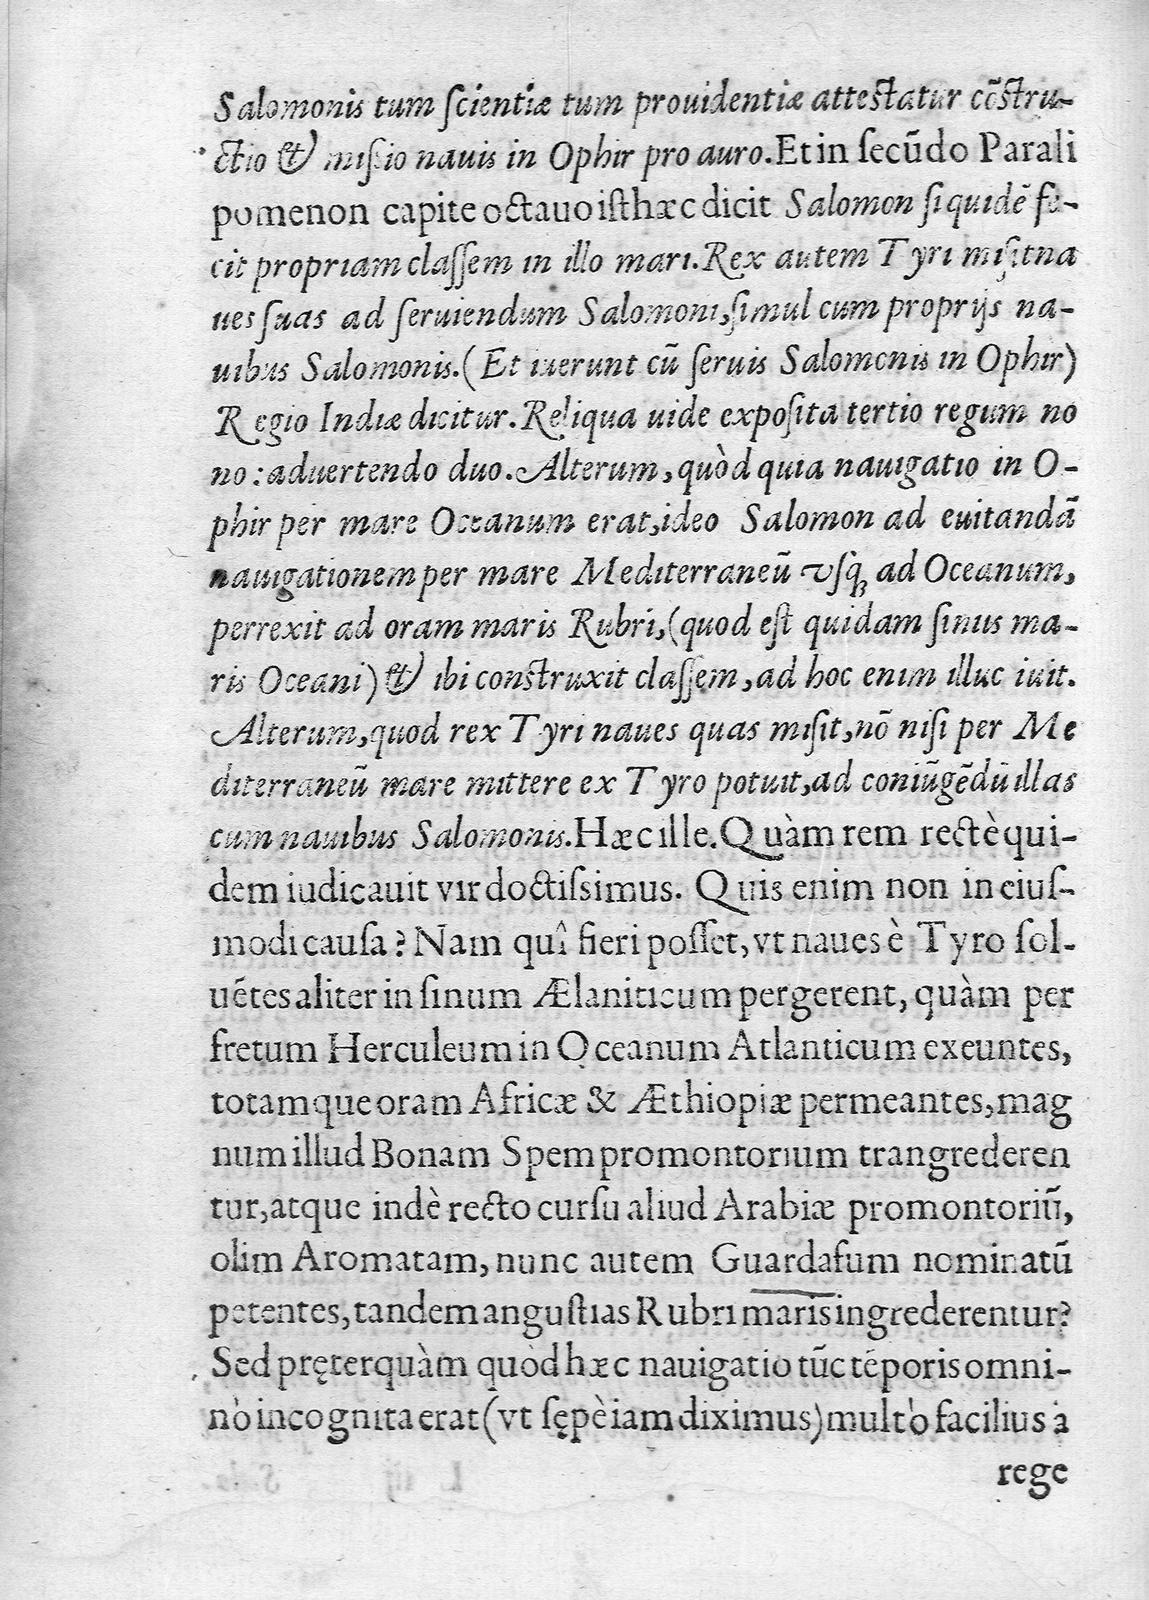 Salomonis tum ſcientiæ tum prouidentiæ atteſtatur cõſtru-
ctio & miſsio nauis in Ophir pro auro. Et in ſecũdo Parali
pomenon capite octauo iſthæc dicit Salomon ſiquidẽ fe-
cit propriam claſſem in illo mari. Rex autem Tyri miſit na
ues ſuas ad ſeruiendum Salomoni, ſimul cum proprijs na-
uibus Salomonis. (Et iuerunt cũ ſeruis Salomonis in Ophir)
Regio Indiæ dicitur. Reliqua uide expoſita tertio regum no
no: aduertendo duo. Alterum, quòd quia nauigatio in O-
phir per mare Oceanum erat, ideo Salomon ad euitandã
nauigationem per mare Mediterraneũ vſq; ad Oceanum,
perrexit ad oram maris Rubri, (quod eſt quidam ſinus ma-
ris Oceani) & ibi conſtruxit claſſem, ad hoc enim illuc iuit.
Alterum, quod rex Tyri naues quas miſit, nõ niſi per Me
diterraneũ mare mittere ex Tyro potuit, ad coniũgẽdũ illas
cum nauibus Salomonis. Hæc ille. Quàm rem rectè qui-
dem iudicauit vir doctiſsimus. Quis enim non in eiuſ-
modi cauſa? Nam quî fieri poſſet, vt naues è Tyro ſol-
uẽtes aliter in ſinum Ælaniticum pergerent, quàm per
fretum Herculeum in Oceanum Atlanticum exeuntes,
totamque oram Africæ & Æthiopiæ permeantes, mag
num illud Bonam Spem promontorium trangrederen
tur, atque indè recto curſu aliud Arabiæ promontoriũ,
olim Aromatam, nunc autem Guardafum nominatũ
petentes, tandem anguſtias Rubri maris ingrederentur?
Sed pręterquàm quòd hæc nauigatio tũc tẽporis omni-
nò incognita erat (vt ſępè iam diximus) multò facilius à
rege